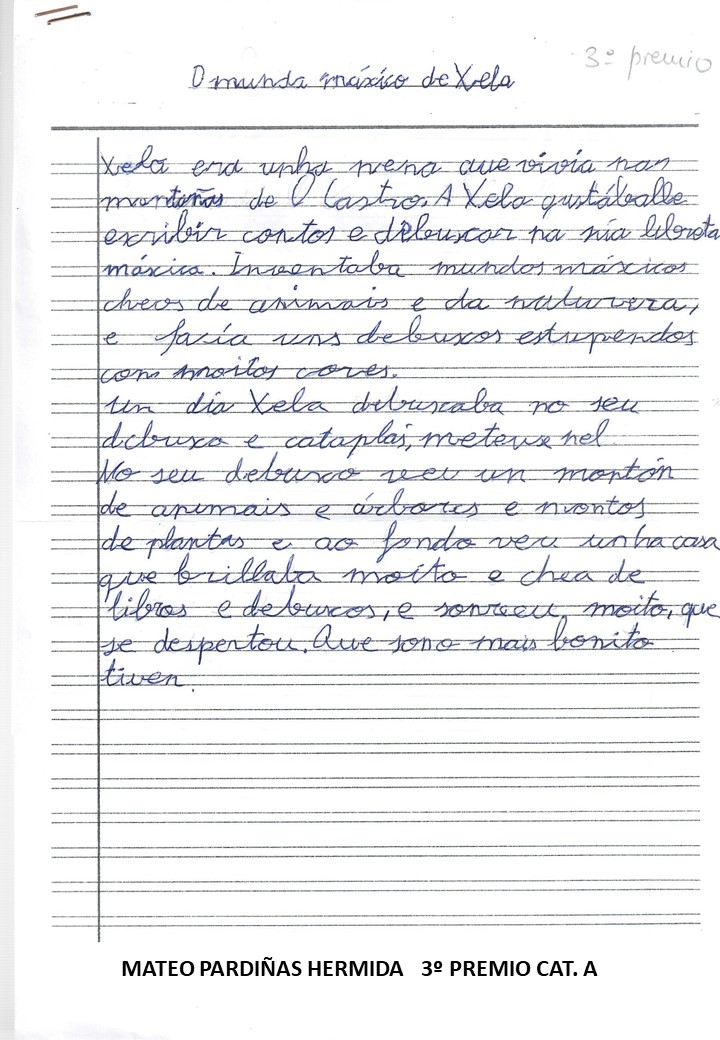 3º premio
O mundo máxico de Xela
Xela era unha nena que vivía nas
montañas de O Castro. A Xela gustáballe
escribir contos e dibuxar na súa libreta
máxica. Inventaba mundos máxicos
cheos de animais e da natureza,
e facía uns debuxos estupendos
con moitos cores.
Un día Xela dibuxaba no seu
debuxo e cataplás, meteuse nel.
No seu debuxo veu un montón
de animais e árbores e montos
de plantas e ao fondo veu unha casa
que brillaba moito e chea de
libros e debuxos, e sonreu moito, que
se despertou. Que sono mais bonito
tiven.
MATEO PARDIÑAS HERMIDA 3º PREMIO CAT. A